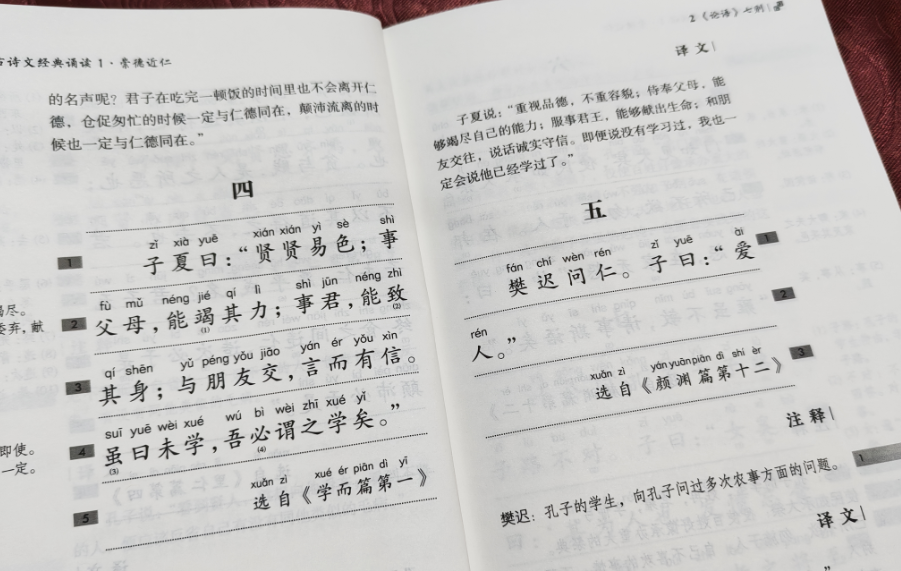 诗文经典诵读 1·崇德近仁
的名声呢？君子在吃完一顿饭的时间里也不会离开仁
德，仓促匆忙的时候一定与仁德同在，颠沛流离的时
候也一定与仁德同在。”
四
zǐ xià yuē xián xián yì sè shì
1 子夏曰：“贤贤易色；事
fù mǔ néng jié qí lì shì jūn néng zhì
2 父母，能竭其力；事君，能致
(1) (2)
qí shēn yǔ péng yǒu jiāo yán ér yǒu xìn
3 其身；与朋友交，言而有信。
suī yuē wèi xué wú bì wèi zhī xué yǐ
4 虽曰未学，吾必谓之学矣。”
(3) (4)
xuǎn zì xué ér piān dì yī
5 选自《学而篇第一》
尽。
弃，献
即使。
一定。
2《论语》七则
译文
子夏说：“重视品德，不重容貌；侍奉父母，能
够竭尽自己的能力；服事君王，能够献出生命；和朋
友交往，说话诚实守信。即便说没有学习过，我也一
定会说他已经学过了。”
五
fán chí wèn rén zǐ yuē ài
樊迟问仁。子曰：“爱 1
rén
人。” 2
xuǎn zì yán yuān piān dì shí èr
选自《颜渊篇第十二》 3
注释
1
樊迟：孔子的学生，向孔子问过多次农事方面的问题。
译文